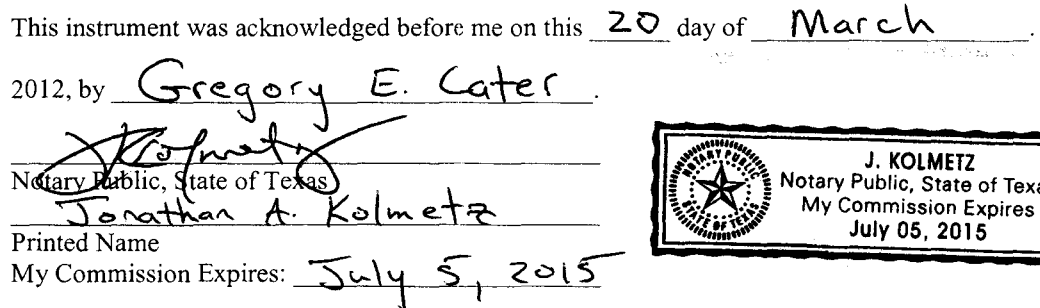 This instrument was acknowledged before me on this 20 day of March.
2012, by Gregory E. Cater.
Kolmetz
Notary Public, State of Texas
Jonathan A. Kolmetz
Printed Name
My Commission Expires: July 5, 2015
NOTARY PUBLIC
STATE OF TEXAS
J. KOLMETZ
Notary Public, State of Texa
My Commission Expires
July 05, 2015